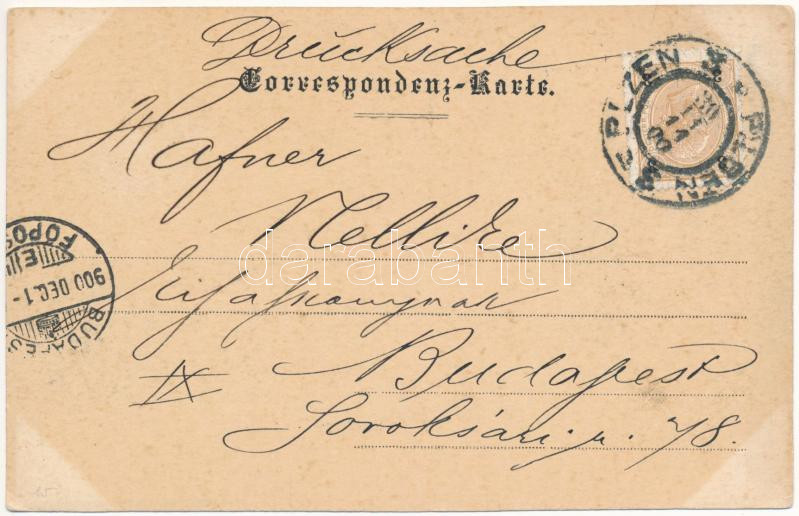 Drucksache
Correspondenz-Karte.
Hafner
Nellike
IX
Budapest
Soroksári u. 78.
PLZEN
PILSEN
30 11 00
BUDAPEST
FŐPOS
900 DEC. 1-
E
darabanth